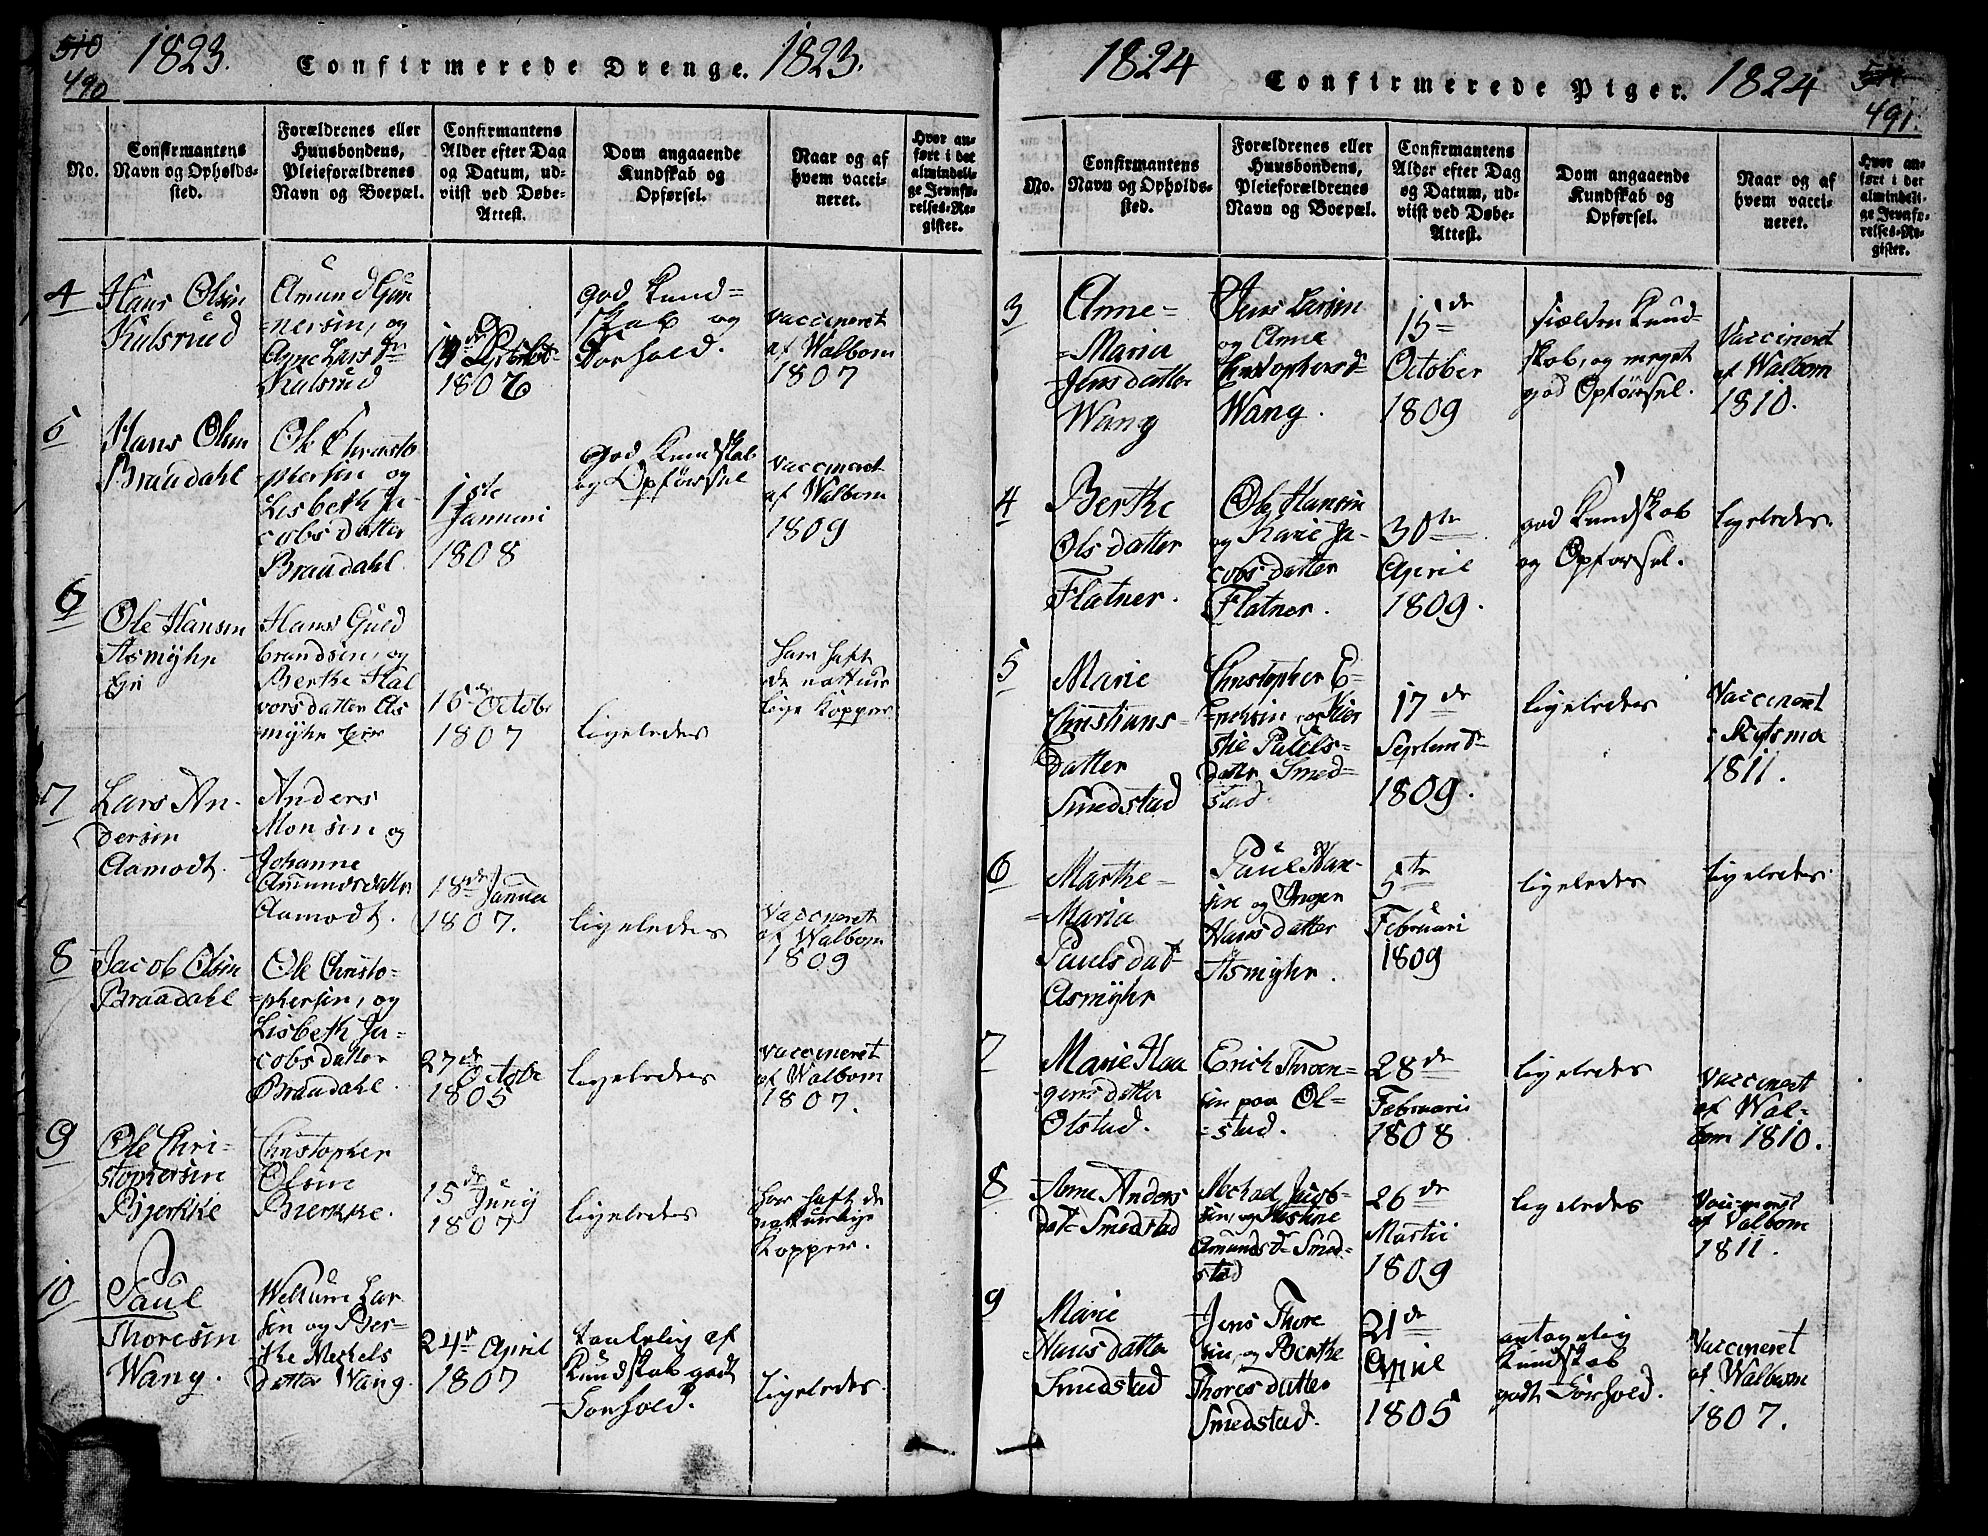 510
490
1823.
Confirmerede Drenge.
1823.
No.
Confirmantens
Navn og Opholds-
sted.
Forældrenes eller
Huusbondens,
Pleieforældrenes
Navn og Boepæl.
Confirmantens
Alder efter Dag
og Datum, ud-
viist ved Døbe-
Attest.
Dom angaaende
Kundskab og
Opførsel.
Naar og af
hvem vacci-
neret.
Hvor an-
ført i det
almindeli-
ge Jevnfø-
relses-Re-
gister.
4
Hans Olsen
Kulsrud
Amund Gun
=nersen, og
Agne Lars Dr
Kulsrud
1806
god Kund=
skab og
Forhold.
vaccineret
af Walbom
1807
5
Hans Olsen
Braadahl
Ole Christo
phersen og
Lisbeth Ja-
cobsdatter
Braadahl.
1ste
Januari
1808
god Kundskab
og Opførsel
vaccineret
af Walbom
1809
6
Ole Hansen
Asmyhr
Eie
Hans Guld
brandsen, og
Berthe Hal
vorsdatter As
myhr Eie
16de Octobr
1807
ligeledes
har haft
de nattur
lige Kopper
7
Lars An-
dersen
Aamodt.
Anders
Monsen og
Johanne
Amundsdatter
Aamodt.
18de Janua
1807.
ligeledes
Vaccineret
af Walbom
1809
8
Jacob Olsen
Braadahl
Ole Christo=
=phersen, og
Lisbeth Ja-
cobsdatter
Braadahl.
27de
Octobr
1805
ligeledes
vaccineret
af Walbom
1807.
9
Ole Chri-
stophersen
Bjerkke
Christopher
Olsen
Bierkke.
15de Junij
1807
ligeledes
har haft de
naturlige
Kopper.
10
Paul
Thoresen
Wang.
Lar
sen og Ber-
the Mekels
datter Wang.
24de April
1807
taalelig af
Kundskab godt
Forhold.
ligeledes.
1824
Confirmerede Piger.
1824
511
491.
No.
Confirmantens
Navn og Opholds-
sted.
Forældrenes eller
Huusbondens,
Pleieforældrenes
Navn og Boepæl.
Confirmantens
Alder efter Dag
og Datum, ud-
viist ved Døbe-
Attest.
Dom angaaende
Kundskab og
Opførsel.
Naar og af
hvem vacci-
neret.
Hvor an-
ført i det
almindeli-
ge Jevnfø-
relses-Re-
gister.
3
Anne=
=Maria
Jensdatter
Wang
Jens Larsen
og Anne
Christophersd=
Wang.
15de
October
1809
sielden Kund-
skab, og meget
god Opførsel.
Vaccineret
af Walbom
1810.
4
Berthe
Olsdatter
Flatner.
Ole Hansen
og Karie Ja-
cobsdatter
Flatner.
30te
April
1809.
god Kundskab
og Opførsel.
ligeledes.
5
Marie
Christians-
datter
Smedstad
Christopher E=
stie Paules-
datter Smed=
stad.
17de
Septembr
1809.
ligeledes
Vaccineret
1811.
6
Marthe=
=Maria
Paulsdat
Asmyhr
Paul Han-
sen og Inger
Hansdatter
Asmyhr.
5te
Februari
1809
ligeledes
ligeledes.
7
Marie Haa
gensdatter
Olstad.
Erich Throen-
sen paa Ol-
=stad.
28de
Februari
1808
ligeledes
Vaccineret
af Wal-
bom 1810.
8
Anne Anders
dat= Smedstad
Michael Jacob-
sen, og Kirstine
Amunds D= Smed=
stad
26de
Martii
1809
ligeledes
Vaccineret
af Valbom
1811.
9
Marie
Hansdatter
Smedstad
Jens Thore
sen, og Berthe
Thoresdatter
Smedstad.
21de
April
1805
antagelig
Kundskab
godt Forhold.
Vaccineret
af Walbom
1807.